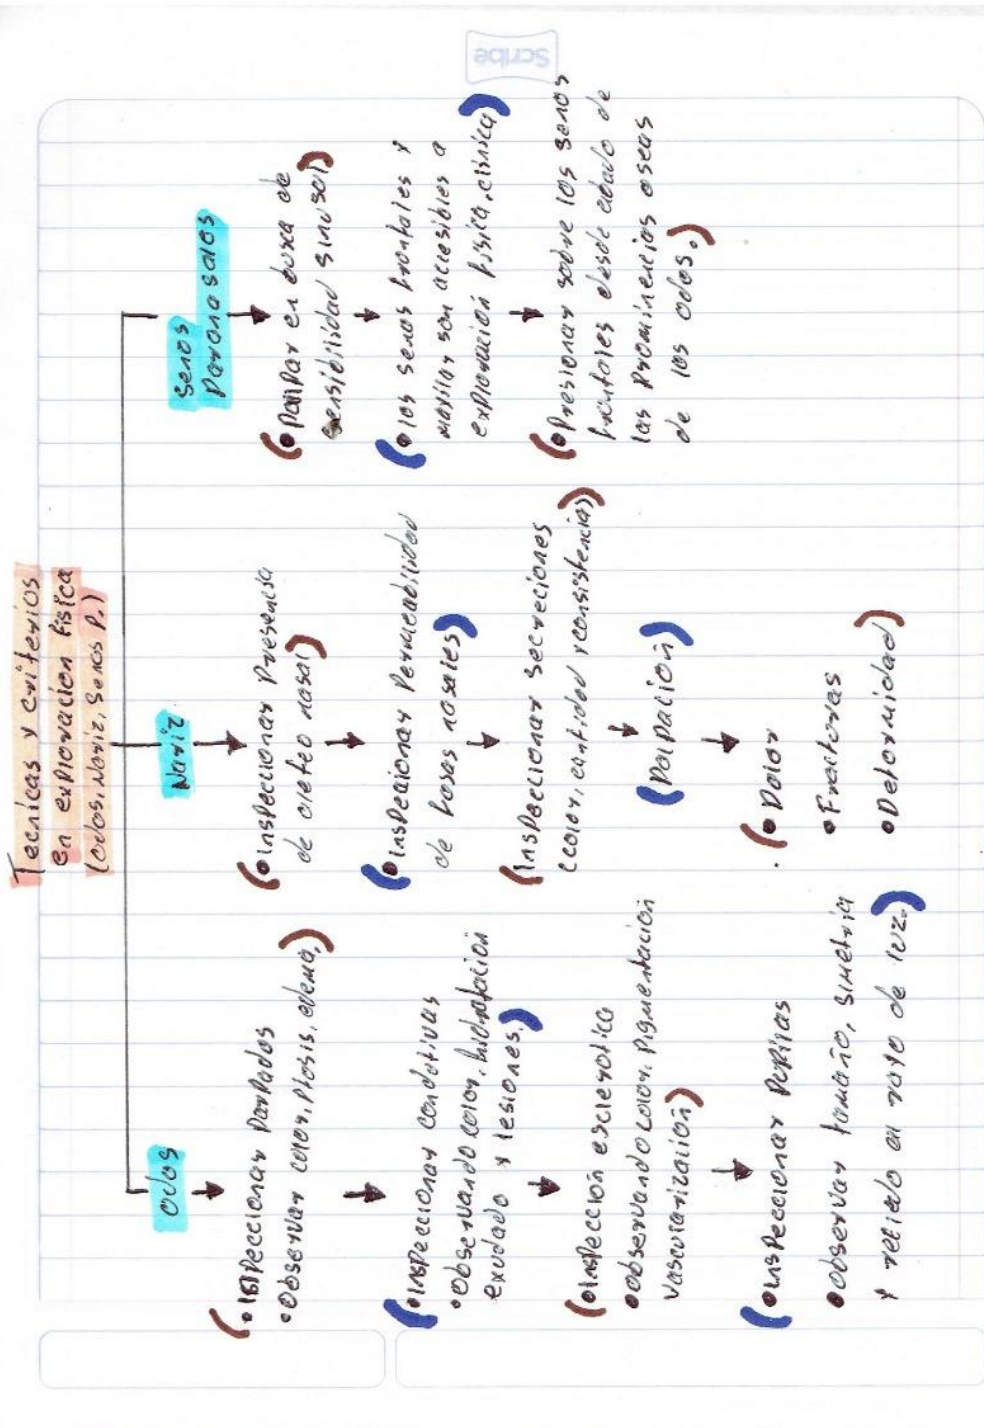 Tecnicas y criterios
en exploración física
(odos, Nariz, Senos P.)
odos
• Inspeccionar Parpados
• Observar color, Ptosis, edema,)
(• Inspeccionar condotivas
• Observando color, hidratación
exudado y lesiones.)
(• Inspección esclerotica
• observando color, Pigmentación
vascularización)
(• Inspeccionar Pupilas
• observar tamaño, simetría
y reflejo al rayo de luz.)
Nariz
(• Inspeccionar Presencia
de aleteo nasal)
(• Inspecionar Permeabilidad
de fosas nasales)
(Inspeccionar secreciones
(color, cantidad y consistencia)
(Palpación)
(• Dolor
• Fracturas
• Deformidad)
Senos
Paranasales
(• Palpar en busca de
sensibilidad sinusal)
(• los senos frontales y
maxilar son accesibles a
exploración física, clínica)
(• Presionar sobre los senos
frontales desde abado de
las Prominencias oseas
de los odos.)
Scribe